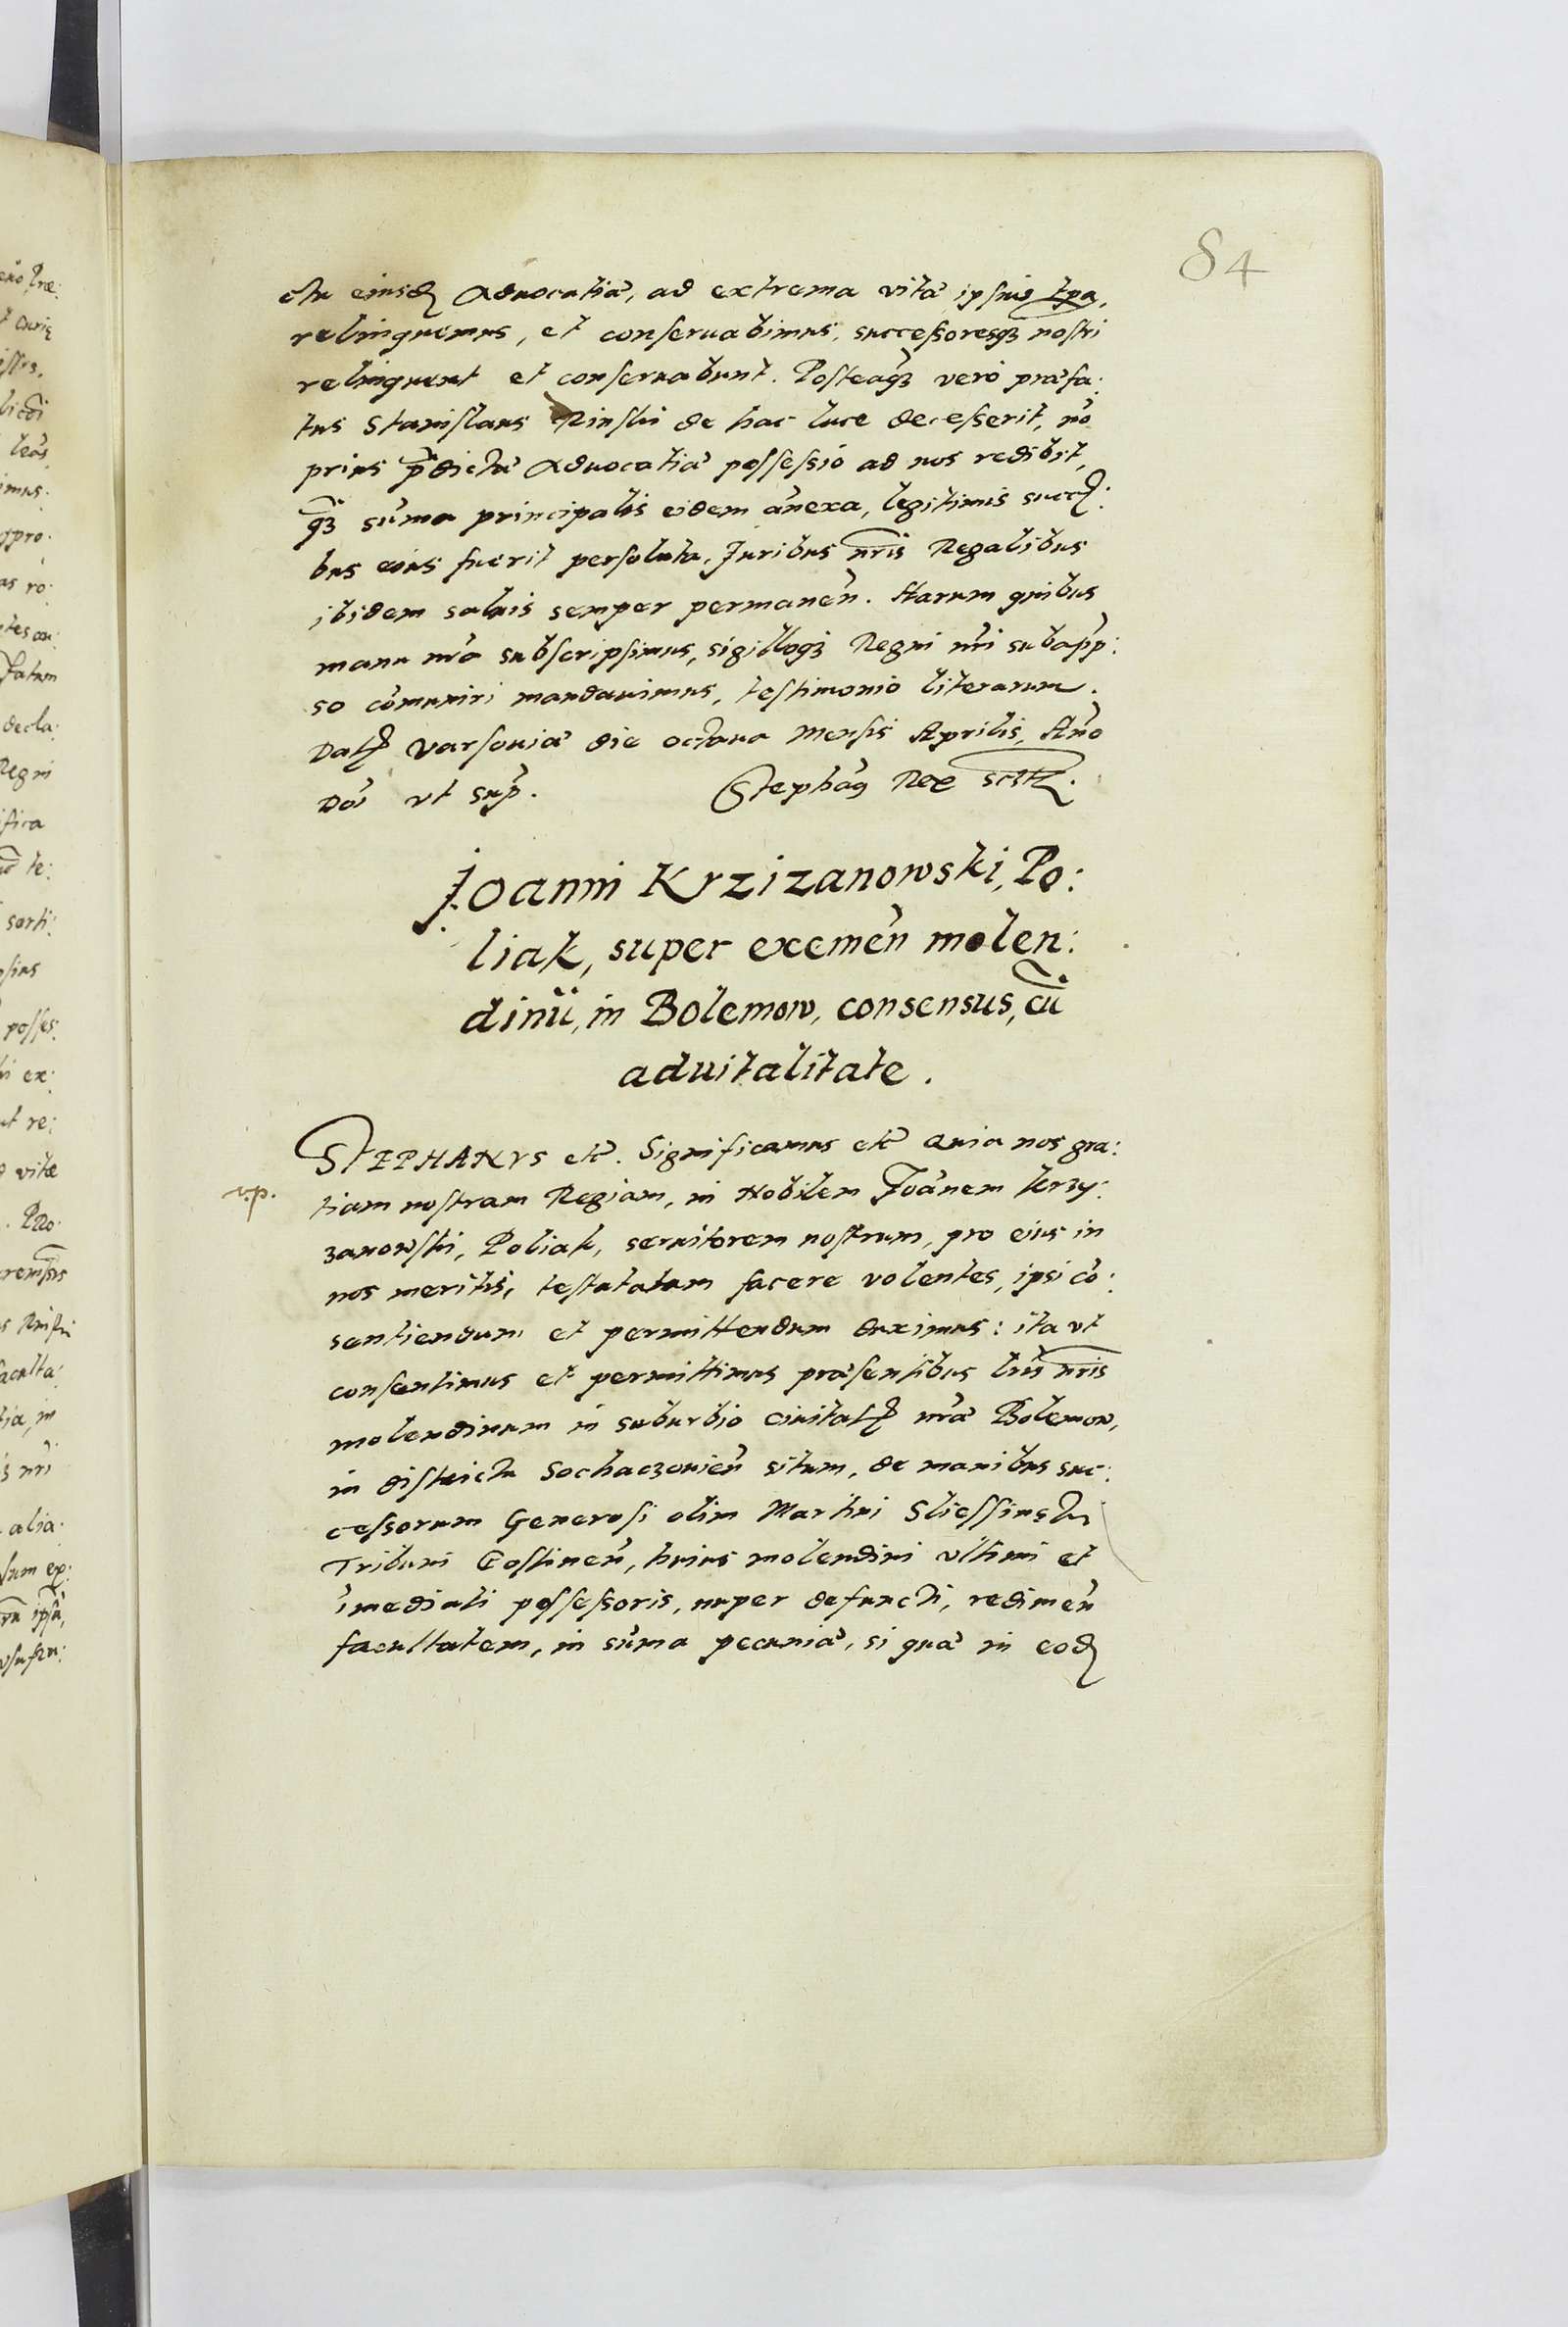 84
ctu eiusđ Aduocatiæ, ad extrema vitæ ipsius tpa,
relinquemus, et conseruabimus, successoresq3 nostri
relinquent et conseruabunt. Posteaq3 vero præfa:
tus Stanislaus Rinski de hac luce decesserit, nō
prius p̄dictæ Aduocatiæ possessio ad nos redibit,
q̄3 sūma principalis eidem añexa, legitimis succ:
bus eius fuerit persoluta, Juribus nr̄is Regalibus
ibidem saluis semper permaneñ. Harum quibus
manu nr̄a subscripsimus, sigilloq3 Regni nr̄i subapp:
so cōmuniri mandauimus, testimonio literarum.
Dat Varsouiæ die octaua Mensis Aprilis, Año
Dōi vt sup̄.
Stephaꝰ Rex sctz.
Joanni Krzizanowski, Po:
liak, super exemeñ molen:
dinū, in Bolemow, consensus, cū
aduitalitate.
STEPHANVS etc̄. Significamus etc̄ Quia nos gra:
r.p.
tiam nostram Regiam, in Nobilem Joānem Krzy:
zanowski, Poliak, seruitorem nostrum, pro eius in
nos meritis, testatatam facere volentes, ipsi cō:
sentiendum et permittendum duximus: ita vt
consentimus et permittimus præsentibus lris nr̄is
molendinum in suburbio ciuitat nr̄æ Bolemow,
in districtu Sochaczouieñ situm, de manibus suc:
cessorum Generosi olim Martini Sliessinski
Tribuni Gostineñ, huius molendini vltimi et
īmediati possessoris, nuper defuncti, redimeñ
facultatem, in sūma pecuniæ, si quæ in eođ